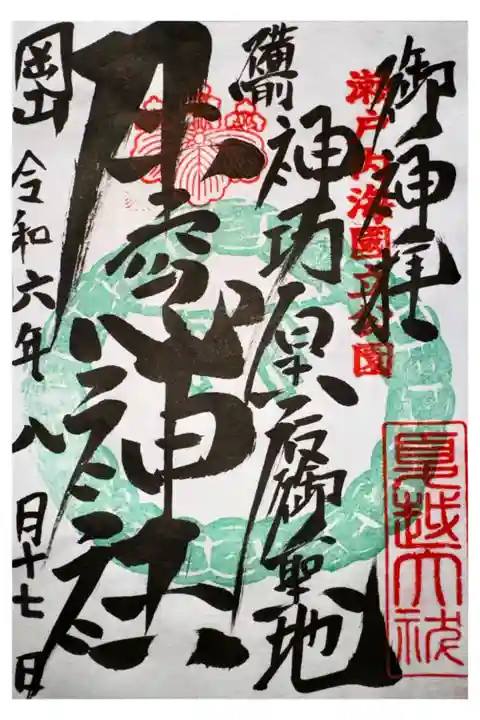 御神拝
瀬戸内海國立公園
夏越大祓
備前
神功皇后御聖地
牛窓神社
岡山
令和六年八月十七日